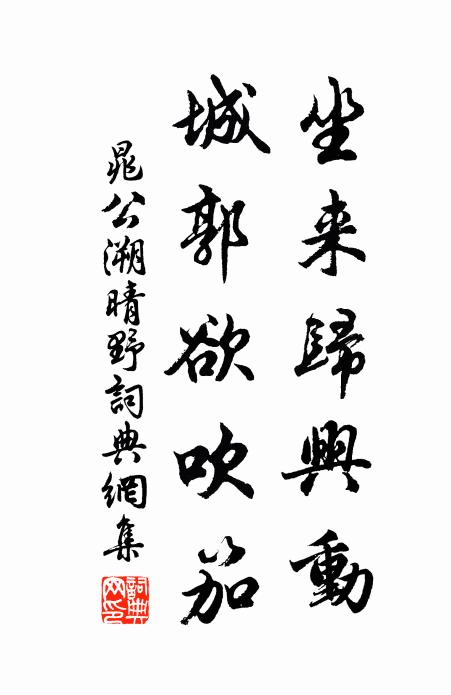 坐来歸興動
城郭欲吹笳
晁公溯晴野詞典網集
詞典網印